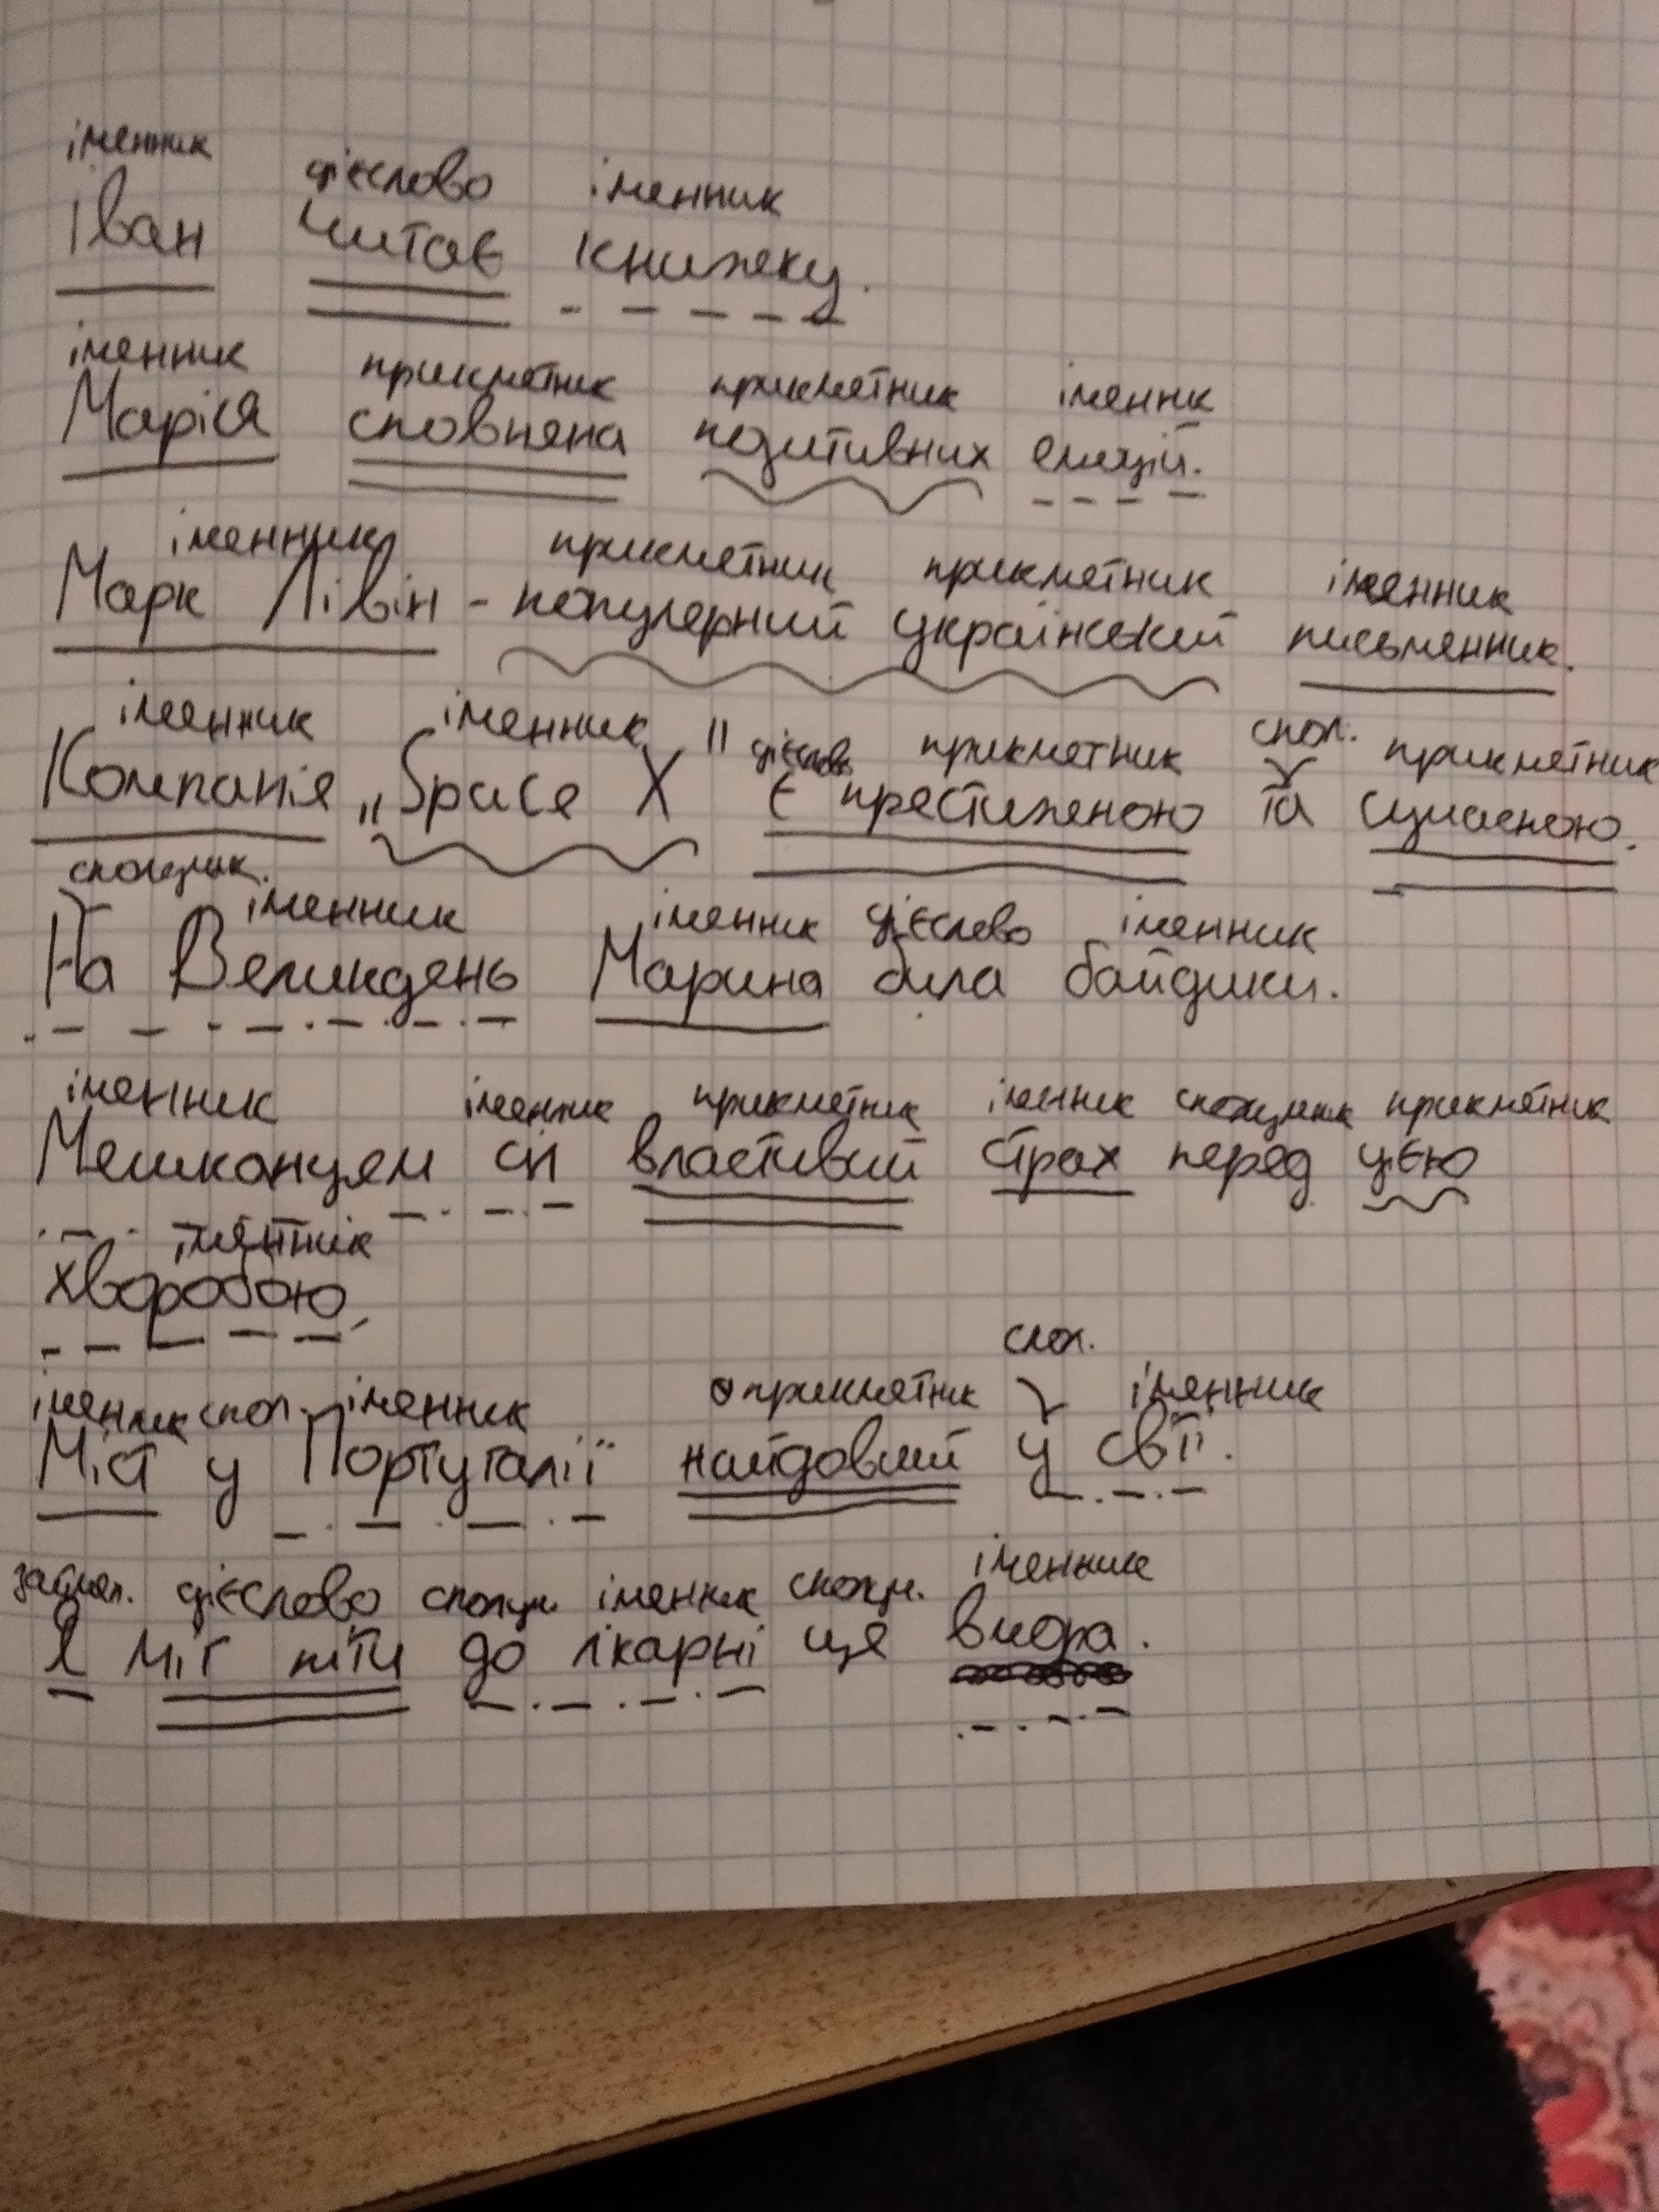 іменник дієслово іменник
Іван читає книжку.
іменник прикметник прикметник іменник
Марія сповнена позитивних емоцій.
іменник прикметник прикметник іменник
Марк Лівін - популярний український письменник.
іменник іменник дієслов прикметник спол. прикметник
Компанія „Space X" є престижною та сучасною.
сполучник. іменник іменник дієслово іменник
На Великдень Марина била байдики.
іменник іменник прикметник іменник сполучник прикметник
Мешканцям сіл властивий страх перед цією
іменник
хворобою.
іменник спол. іменник прикметник спол. іменник
Міст у Португалії найдовший у світі.
займен. дієслово сполуч іменник сполуч. іменник
Я міг піти до лікарні ще вчора.